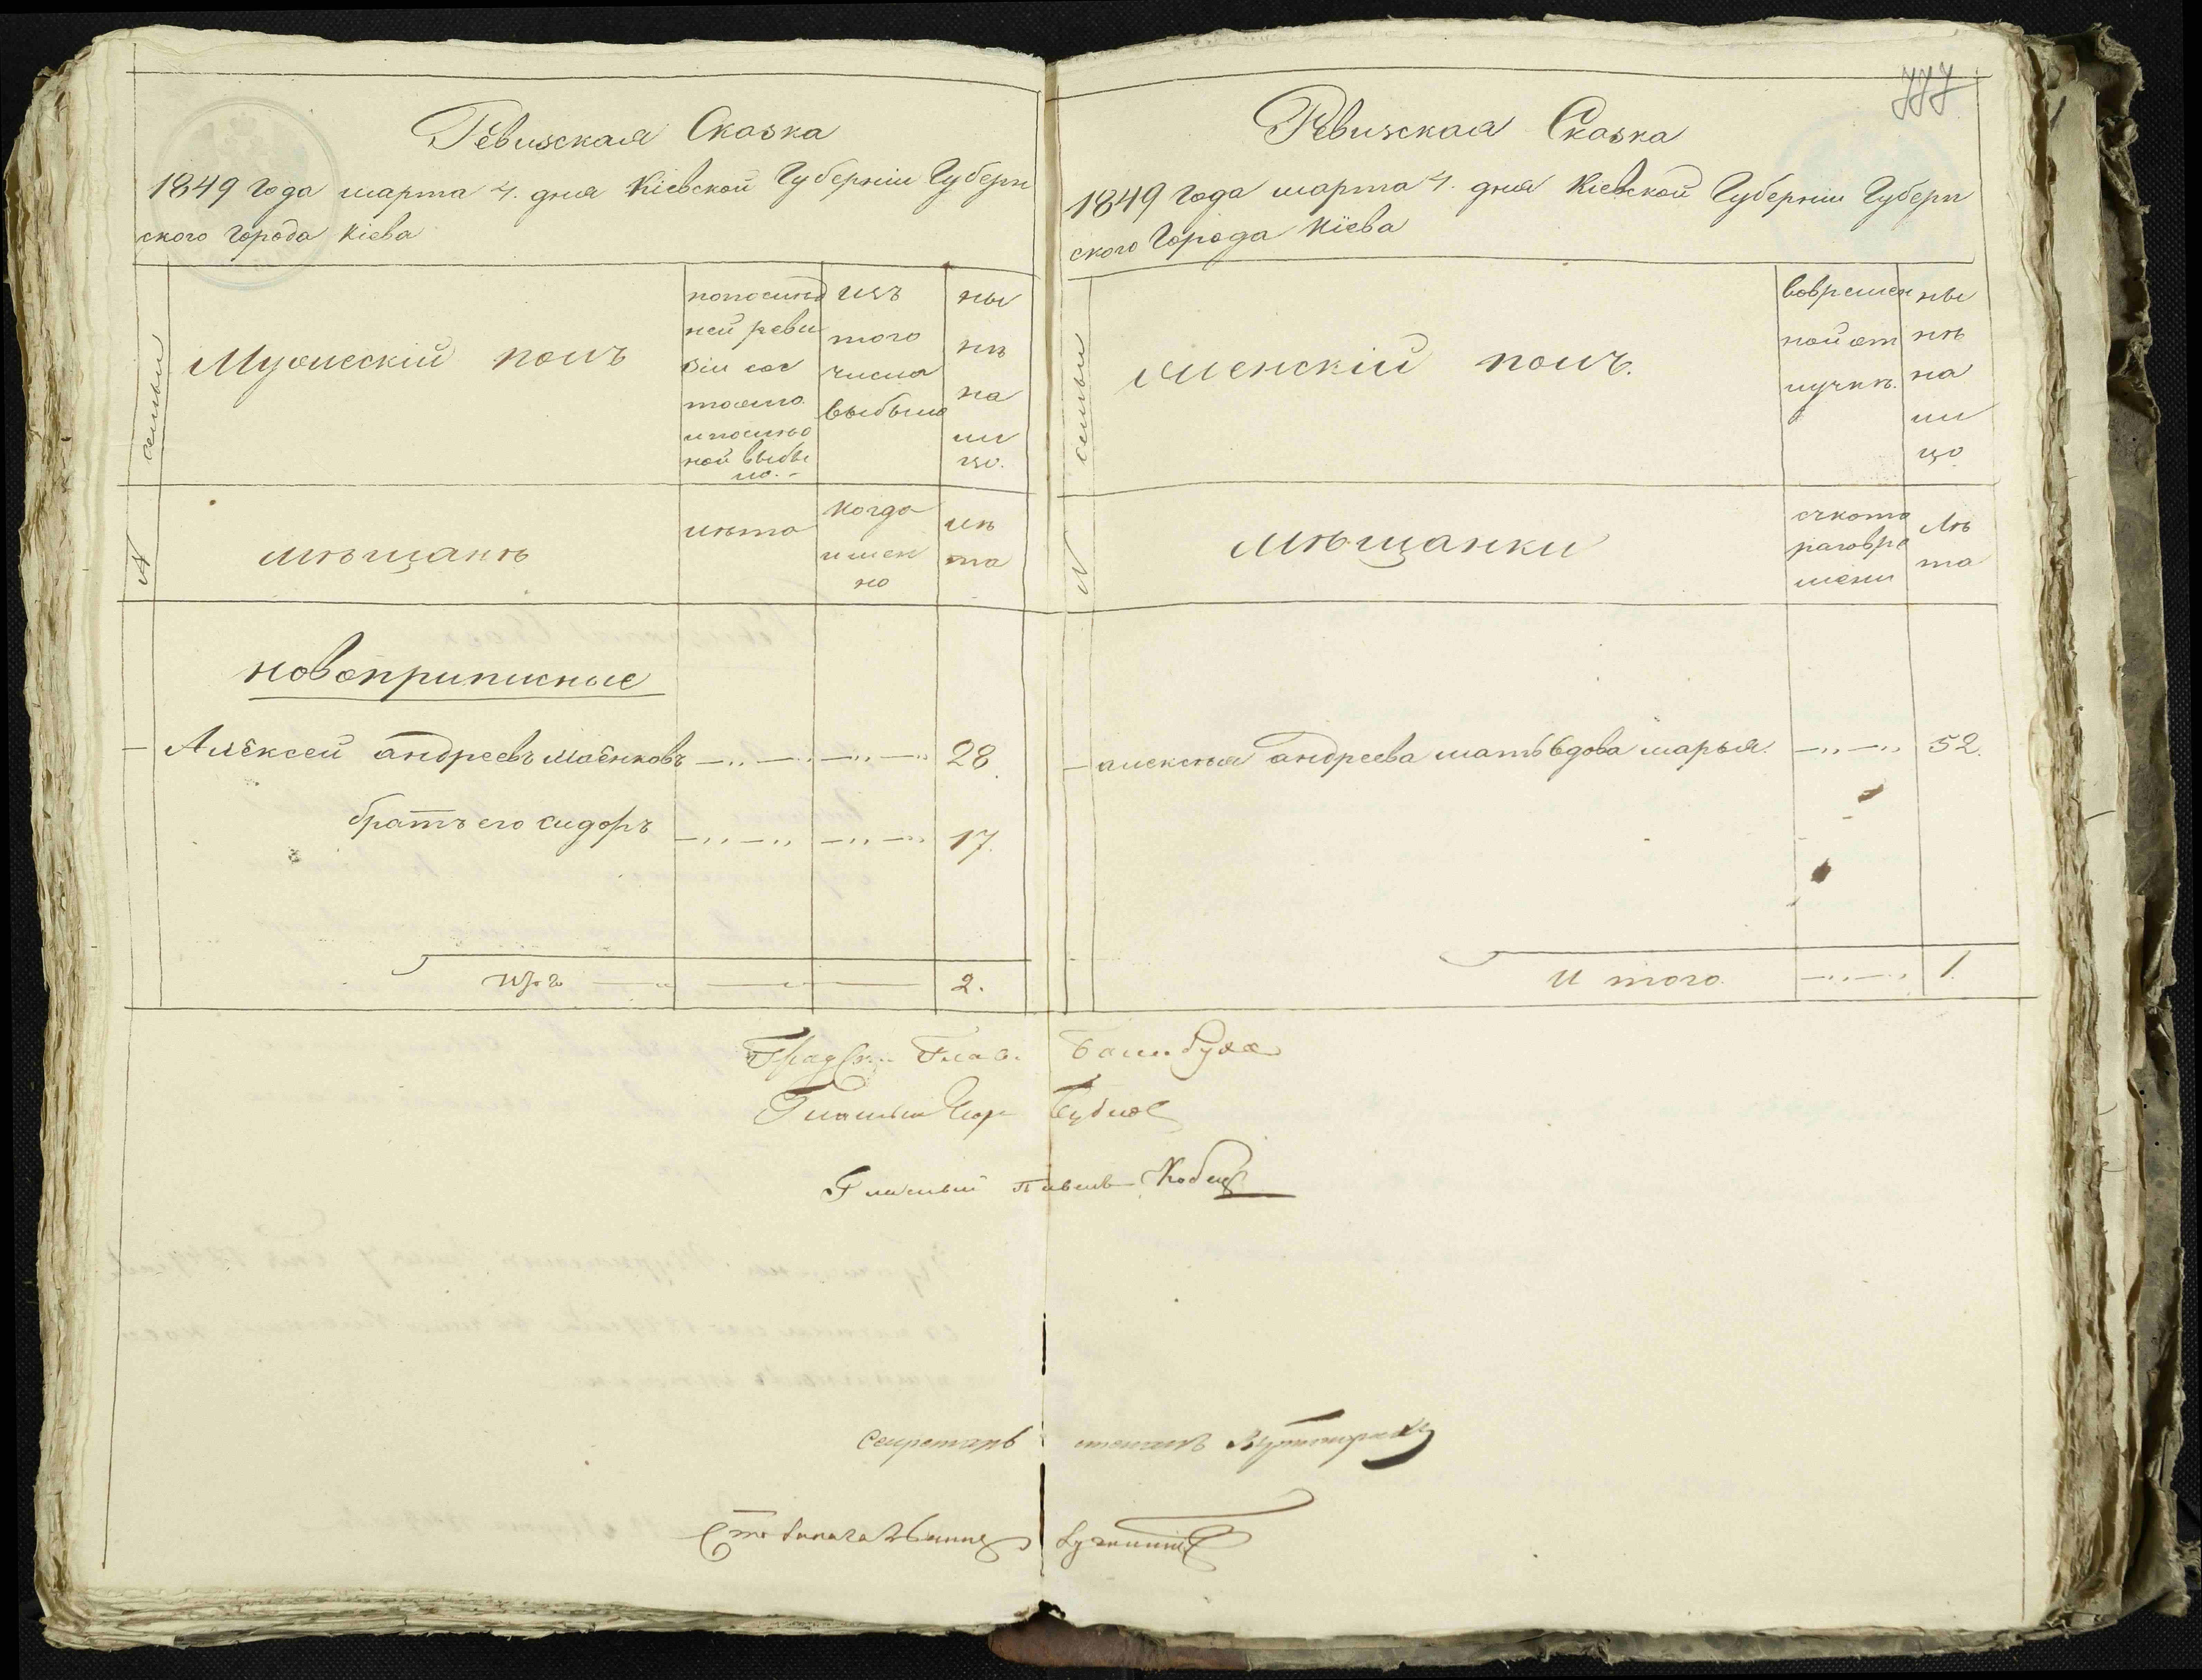 Ревизская Сказка
1849 года марта 4. дня Кіевской Губерніи Губерн
ского города Кіева
№ семьи
Мужескій полъ
попослѣд
ней реви
зіи сос
тояло
ипослѣо
ной выбы
ло.
изъ
того
числа
выбыло
ны
нѣ
на
ли
цо.
мѣщанѣ
лѣта
когда
имен
но
лѣ
та
новоприписные
Алексей андреевъ 28.
братъ его сидоръ 17.
2.
777
Ревизская Сказка
1849 года марта 4. дня Кіевской Губерніи Губерн
ского Города Кіева
№ семьи
женскій полъ.
вовремен
ной от
лучкѣ.
ны
нѣ
на
ли
цо
мѣщанки
ското
раговре
мени
Лѣ
та
алексѣя андреева мать вдова марья. 52.
И того 1.
Градск. Глав.
Гласный
Гласный Павелъ
Секретарь
Столоначальникъ